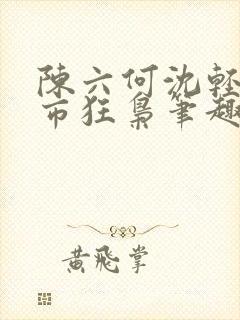 陳六何沈輕
市狂梟筆趣
黃飛掌